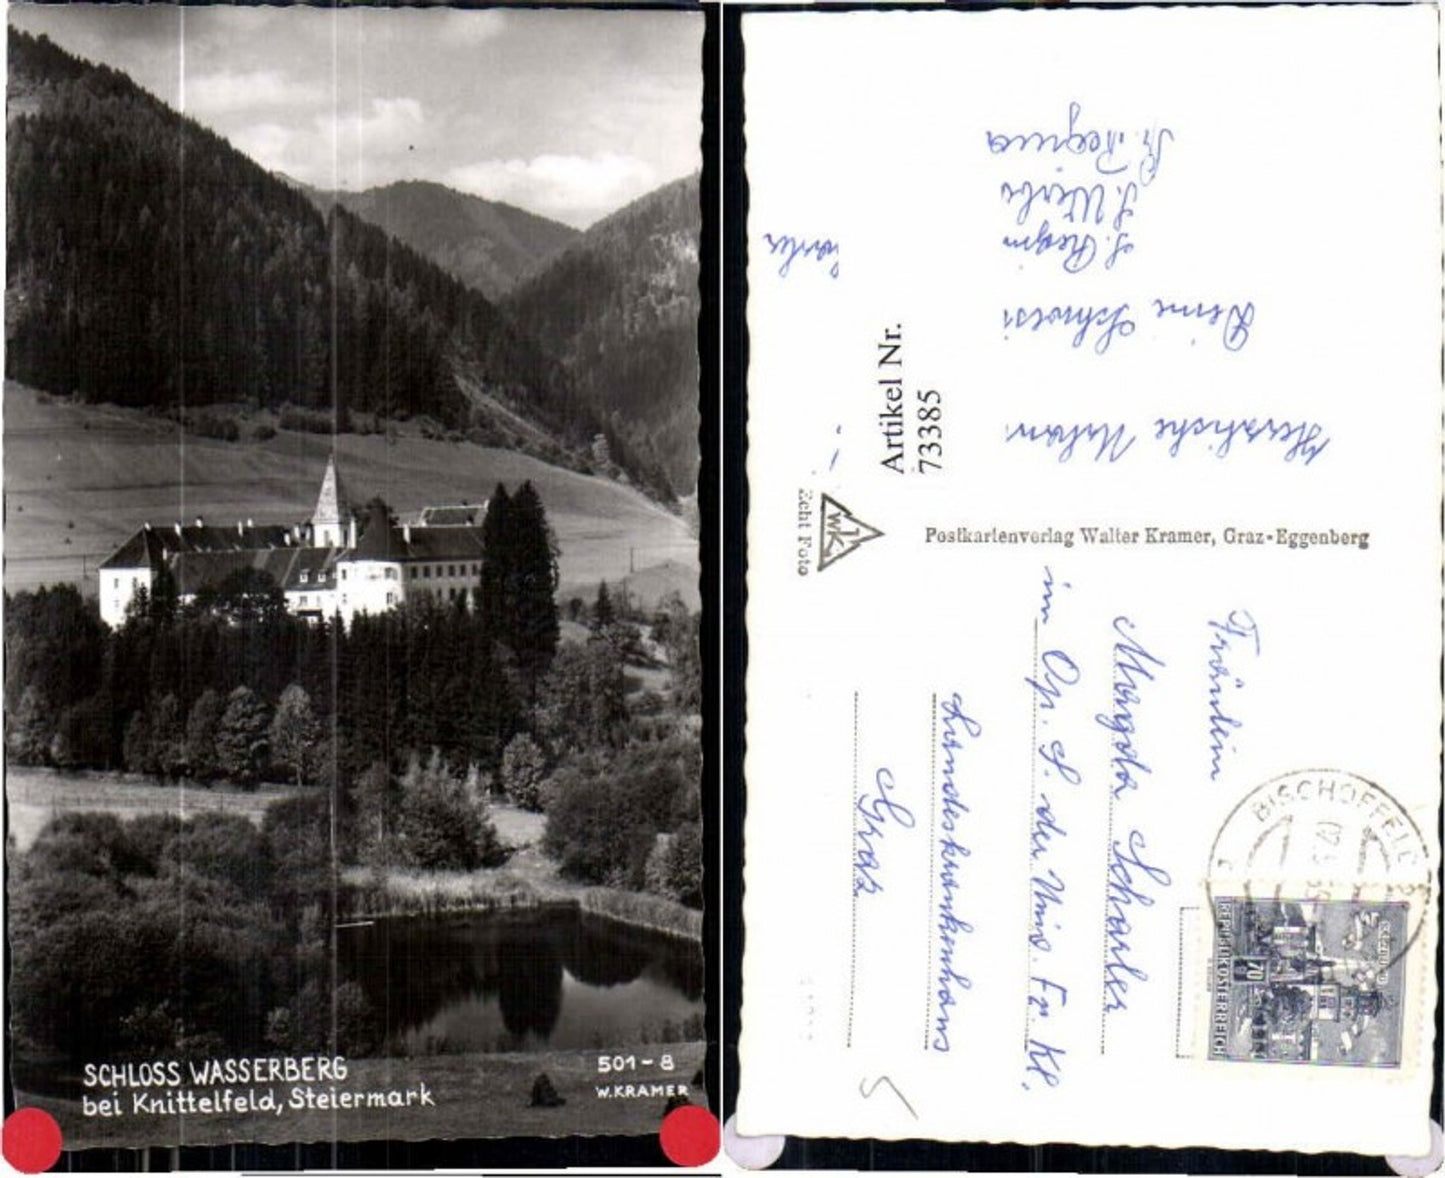 SCHLOSS WASSERBERG
bei Knittelfeld, Steiermark
501-8
W. KRAMER
Herzliche
Deine
S. Regina
Artikel Nr.
73385
Echt Foto
WK
Postkartenverlag Walter Kramer, Graz-Eggenberg
Fräulein
Margota Scharler
im Op. S. der Univ. Fr. Kl.
Landeskrankenhaus
Graz
BISCHOFFELD
REPUBLIK ÖSTERREICH
70